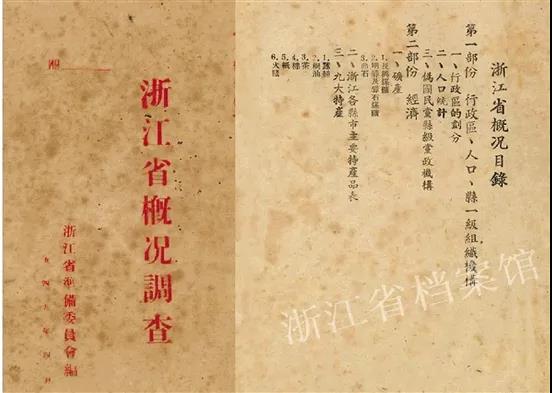 浙江省概况調查
浙江省準備委員會編
浙江省概况目錄
第一部份 行政區、人口、縣一級組織機構
一、行政區的劃分
二、人口統計
三、偽國民黨縣級黨政機構
第二部份 經濟
一、礦產
1.長興煤礦
二、浙江各縣市主要特產品表
三、九大特產
1.蠶絲
2.桐油
3.茶
4.棉
5.紙
6.火腿
浙江省档案馆